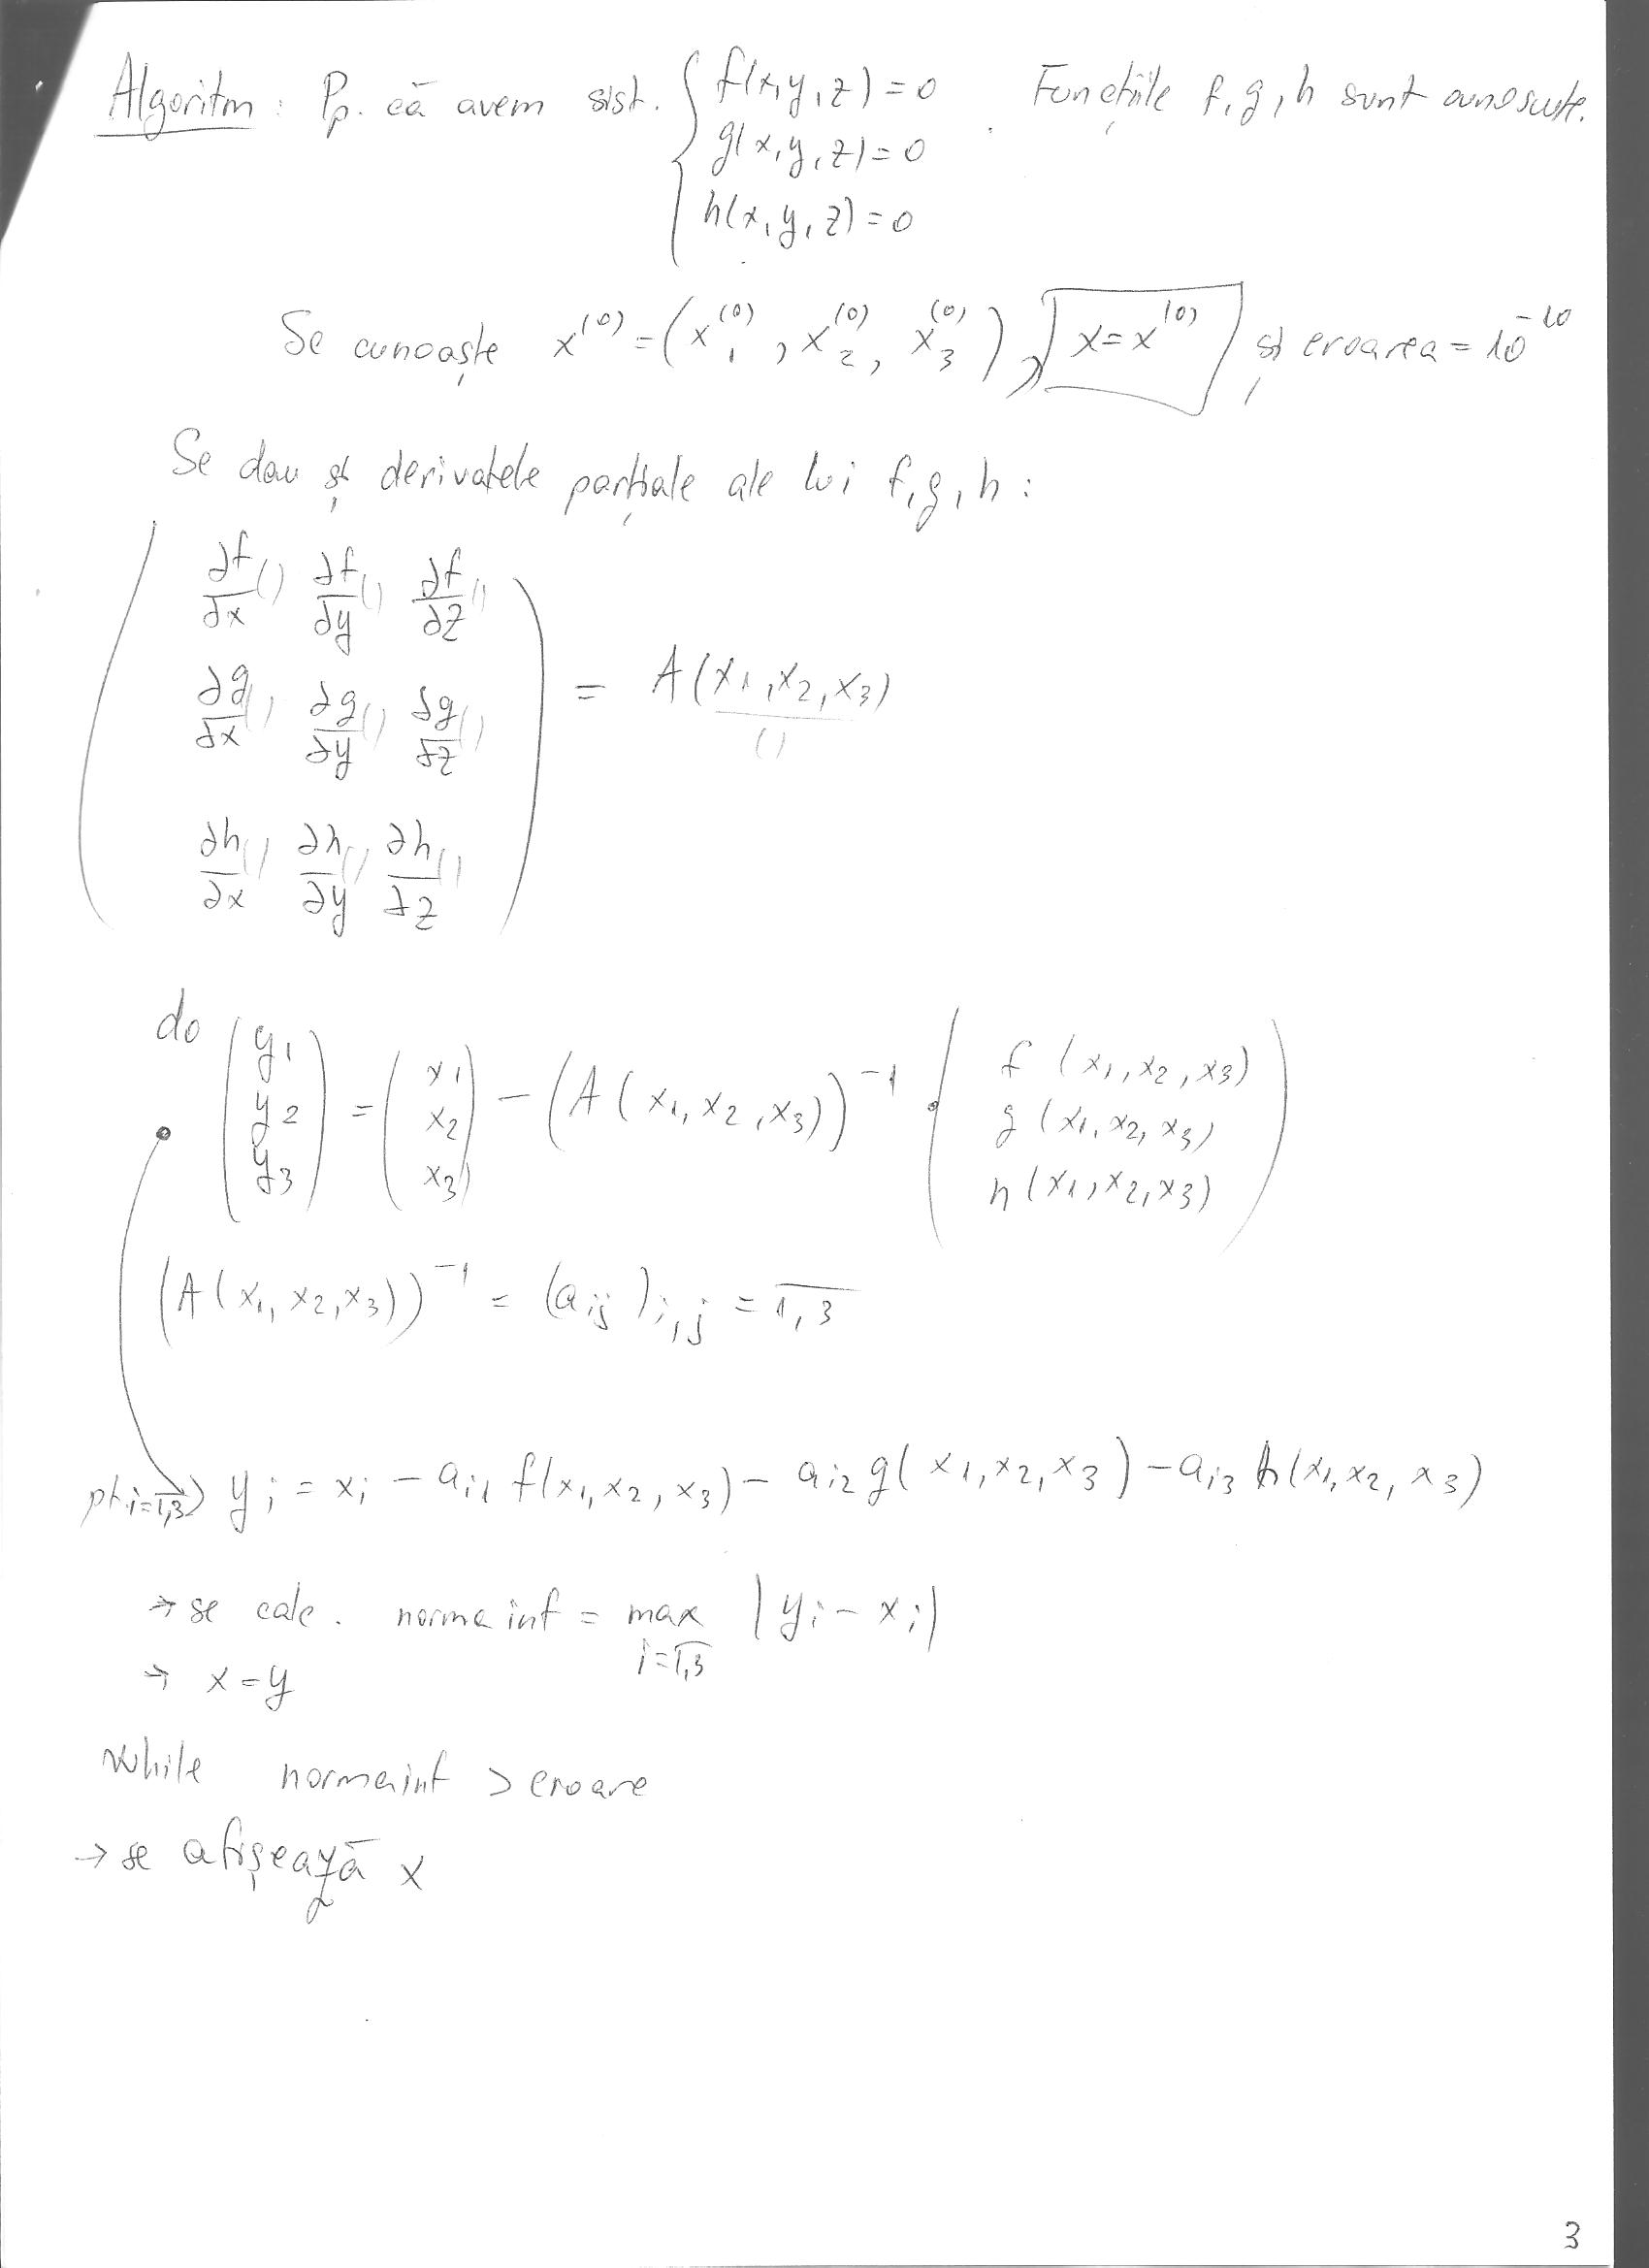 Algoritm : Pp. că avem sist. { f(x,y,z)=0 . Funcțiile f,g,h sunt cunoscute.
g(x,y,z)=0
h(x,y,z)=0
Se cunoaște x^(0) = (x_1^(0), x_2^(0), x_3^(0)), x=x^(0) și eroarea = 10^-10
Se dau și derivatele parțiale ale lui f,g,h :
( ∂f/∂x() ∂f/∂y() ∂f/∂z()
∂g/∂x() ∂g/∂y() ∂g/∂z() ) = A(x_1,x_2,x_3)
()
∂h/∂x() ∂h/∂y() ∂h/∂z()
do (y_1 y_2 y_3) = (x_1 x_2 x_3) − (A(x_1,x_2,x_3))^-1 · ( f(x_1,x_2,x_3)
g(x_1,x_2,x_3)
h(x_1,x_2,x_3) )
(A(x_1,x_2,x_3))^-1 = (a_ij)_i,j = 1,3
pt. i=1,3 y_i = x_i − a_i1 f(x_1,x_2,x_3) − a_i2 g(x_1,x_2,x_3) − a_i3 h(x_1,x_2,x_3)
→ se calc. norma inf = max |y_i − x_i|
i=1,3
→ x=y
while normainf > eroare
→ se afișează x
3